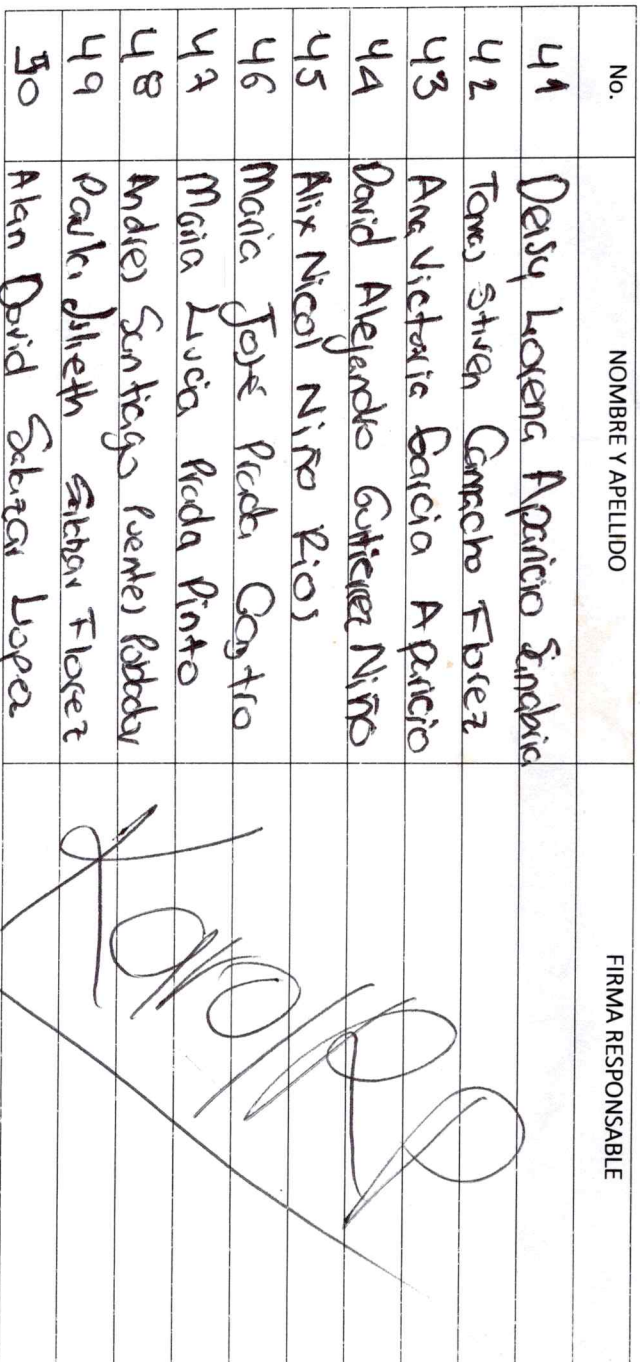 No. NOMBRE Y APELLIDO FIRMA RESPONSABLE
41 Deisy Lorena Aparicio Sanabria
42 Tomas Stiven Camacho Florez
43 Ana Victoria Garcia Aparicio
44 David Alejandro Gutierrez Niño
45 Alix Nicol Niño Rios
46 Maria José Prada Castro
47 Maria Lucia Prada Pinto
48 Andres Santiago Puentes
49 Paula Florez
50 Alan David Salazar Lopez